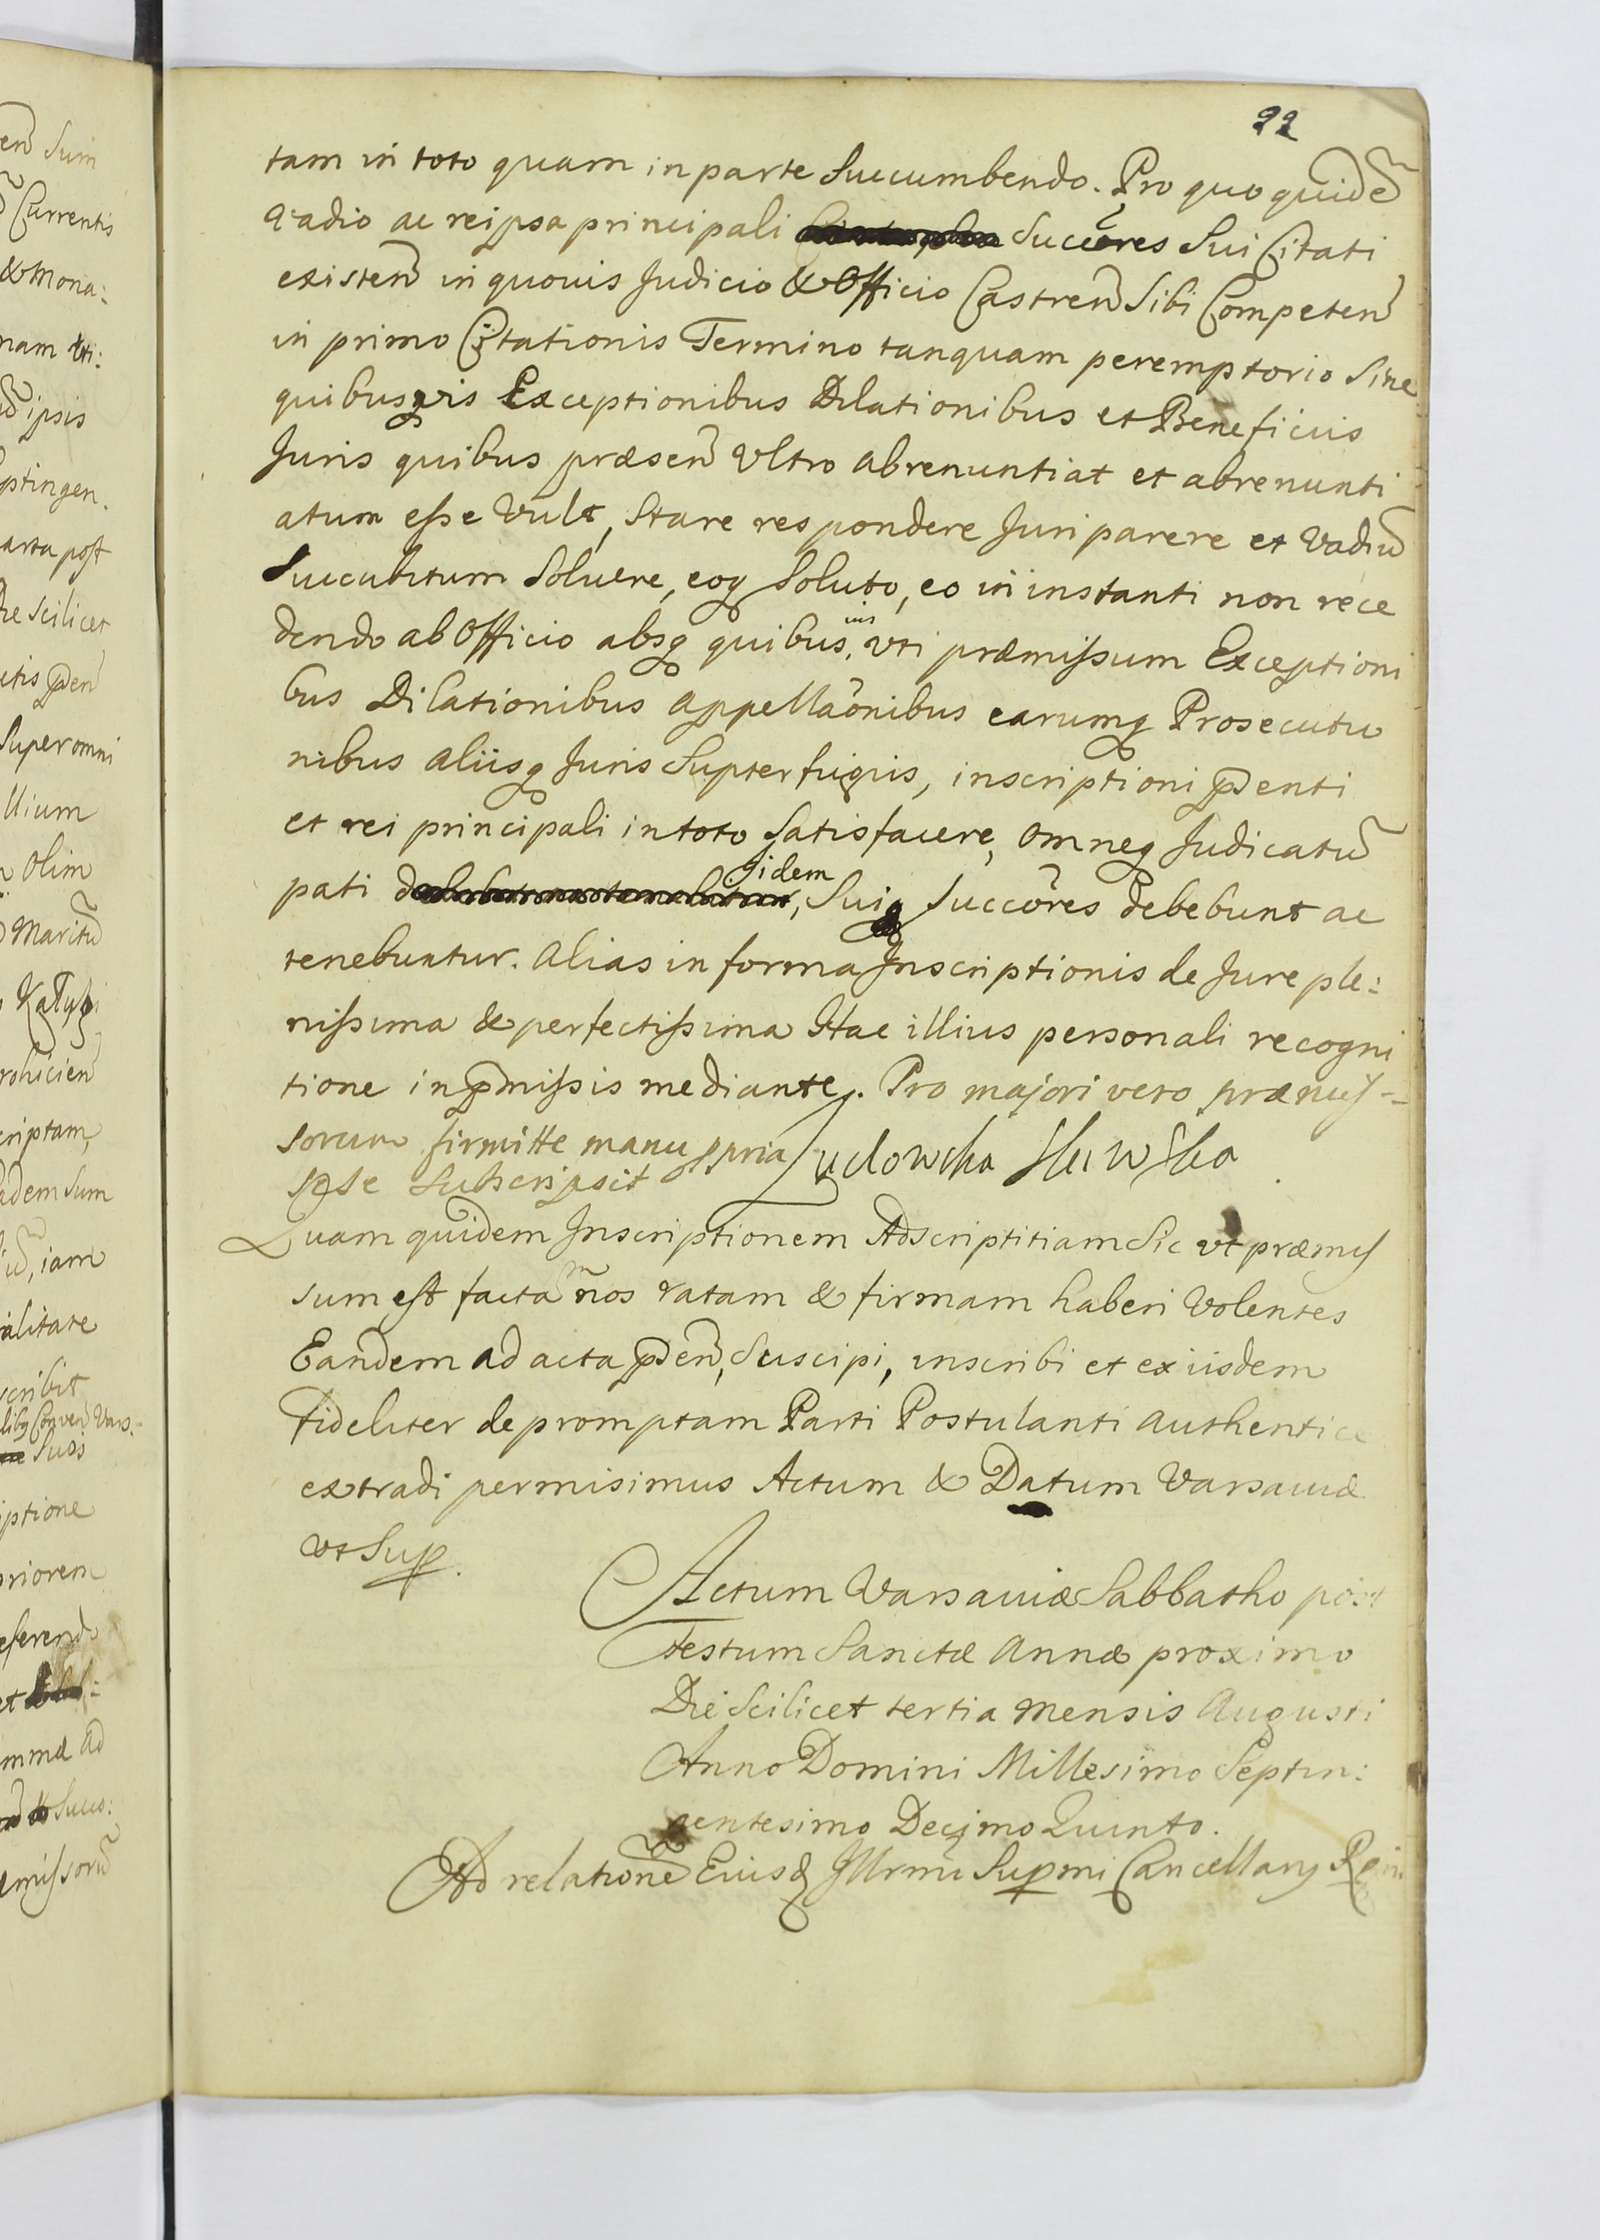 22
tam in toto quam in parte succumbendo. Pro quo quidē
vadio ac reipsa principali Succōres Sui Citati
existen̄ in quovis Judicio & Officio Castren̄ Sibi Competen̄
in primo Citationis Termino tanquam peremptorio Sine
quibusqvis Exceptionibus Dilationibus et Beneficiis
Juris quibus præsen̄ Vltro abrenuntiat et abrenunti
atum esse Vult, Stare respondere Juri parere et Vadiū
Succubitum Soluere, eoq soluto, eo in instanti non rece
dendo ab Officio absq quibus.vis vti præmissum Exceptioni
bus Dilationibus appellaōnibus earumq Prosecutio
nibus aliisq Juris Supterfugiis, inscriptioni pñenti
et rei principali in toto Satisfacere, omneq Judicatū
pati iidem, Suiq Succōres debebunt ac
tenebuntur. Alias in forma Inscriptionis de Jure ple:
nissima & perfectissima Stae illius personali recogni
tione in pmissis mediante. Pro majori vero præmis-
sorum firmitte manu ppria Ludowika
sese Subscripsit
Quam quidem Inscriptionem Adscriptitiam Sic vt præmis
sum est factam nos ratam & firmam haberi Volentes
Eandem ad acta pñen̄, Suscipi, inscribi et ex iisdem
fideliter depromptam Parti Postulanti authentice
extradi permisimus Actum & Datum Varsaviæ
vt Sup.
Actum Varsaviæ Sabbatho post
Festum Sanctæ Annæ proximo
Die Scilicet tertia Mensis Augusti
Anno Domini Millesimo Septin:
gentesimo Decimo Quinto.
Ad relationē Eiusd Illrmi Supmi Cancellarij Regni